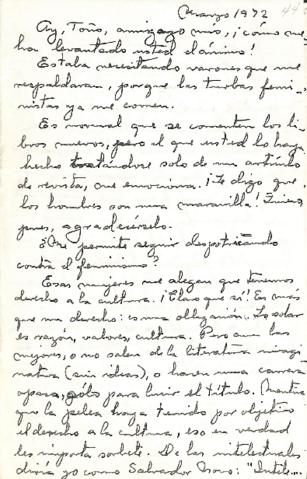 Marzo 1972
Ay, Toño, amigazo mío, ¡cómo me
ha levantado usted el ánimo!
Estaba necesitando varones que me
respaldaran, porque las turbas femi-
nistas ya me comen.
Es normal que se comenten los li-
bros nuevos, pero el que usted lo haya
hecho tratándose solo de un artículo
de revista, me emociona. ¡Le digo que
los hombres son una maravilla!
pues, agradecérselo.
¿Me permite seguir despotricando
contra el feminismo?
Esas mujeres me alegan que tenemos
derecho a la cultura. ¡Claro que sí! Es más
que un derecho: es una obligación. Lo solar
es razón, valores, cultura. Pero aun las
mejores, o no salen de la literatura imagi-
nativa (sin ideas), o hacen una carrera
sólo para lucir el título. Mentira
que la pelea haya tenido por objetivo
el derecho a la cultura, eso en verdad
les importa sorbete. De las intelectuales
diría yo como Salvador Novo: